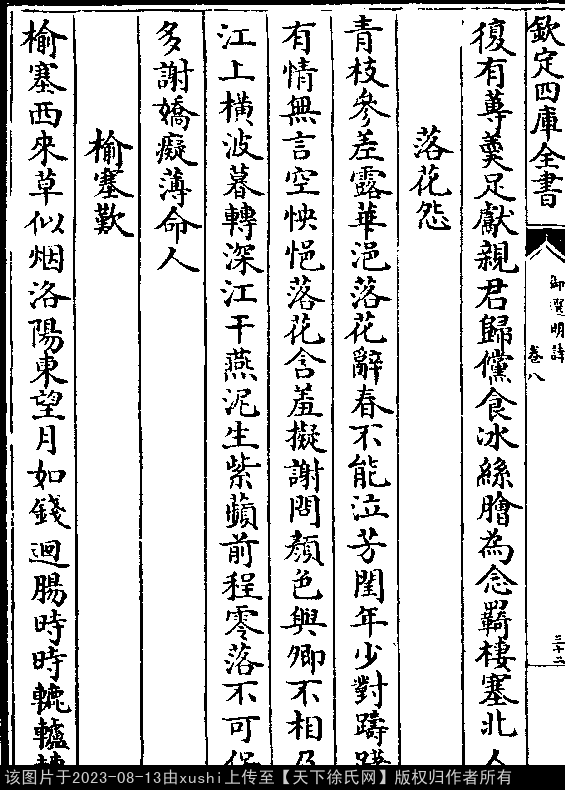 欽定四庫全書
御選明詩
卷八
三十二
復有蓴羮足獻親君歸儻食冰絲膾為念羇棲塞北人
落花怨
青枝參差露華浥落花辭春不能泣芳閨年少對躊
有情無言空怏悒落花含羞擬謝問顏色與卿不相及
江上橫波暮轉深江干燕泥生紫蘋前程零落不可保
多謝嬌癡薄命人
榆塞歎
榆塞西來草似烟洛陽東望月如錢迴腸時時轆轤轉
该图片于2023-08-13由xushi上传至【天下徐氏网】版权归作者所有